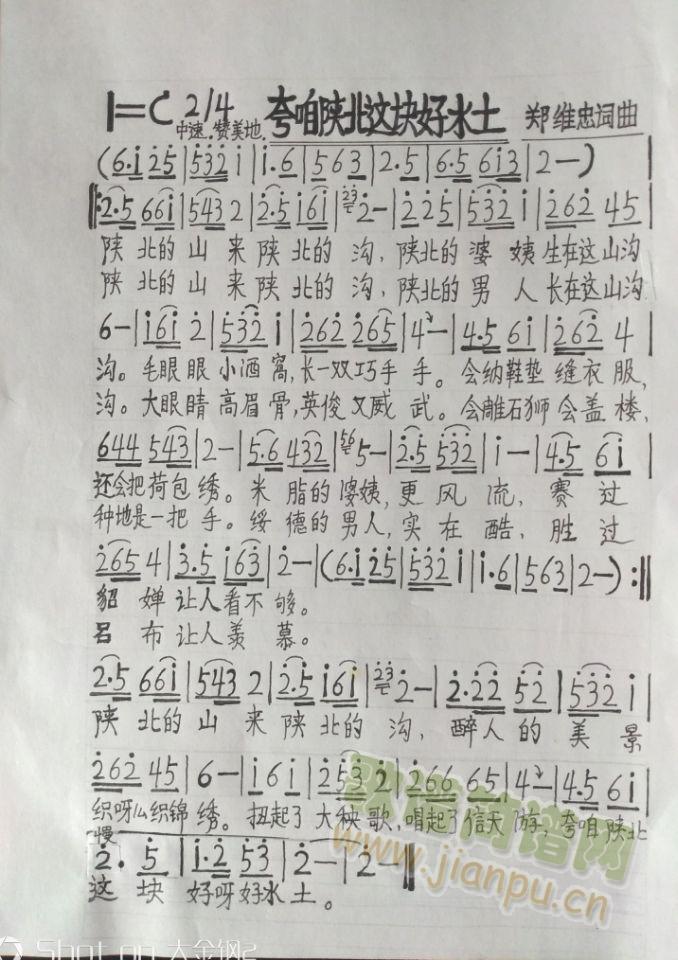 1=C 2/4 中速.赞美地. 夸咱陕北这块好水土 郑维忠词曲
(6.i 25|532 i|i.6|563|2.5|6.5 6i3|2—)
‖:2.5 66i|543 2|2.5 i6i|23 2—|2 25|532 i|262 45
陕北的山来陕北的沟,陕北的婆姨生在这山沟
陕北的山来陕北的沟,陕北的男人长在这山沟
6—|i6i 2|532 i|262 265|4—|4.5 6i|262 4|
沟。毛眼眼小酒窝,长一双巧手手。会纳鞋垫缝衣服,
沟。大眼睛高眉骨,英俊又威武。会雕石狮会盖楼,
644 543|2—|5.6 432|56 5—|2.5 532|i—|4.5 6i|
还会把荷包绣。米脂的婆姨,更风流,赛过
种地是一把手。绥德的男人,实在酷,胜过
265 4|3.5 i63|2—|(6.i 25|532 i|i.6|563|2—):‖
貂婵让人看不够。
吕布让人羡慕。
2.5 66i|543 2|2.5 i6i|23 2—|2.22 52|532 i|
陕北的山来陕北的沟,醉人的美景
262 45|6—|i6i|253 2|266 65|4—|4.5 6i|
织呀么织锦绣。扭起了大秧歌,唱起了信天游,夸咱陕北
慢
2. 5|i.2 53|2—|2—‖
这块好呀好水土。
www.jianpu.cn
Shot on 大金钢2